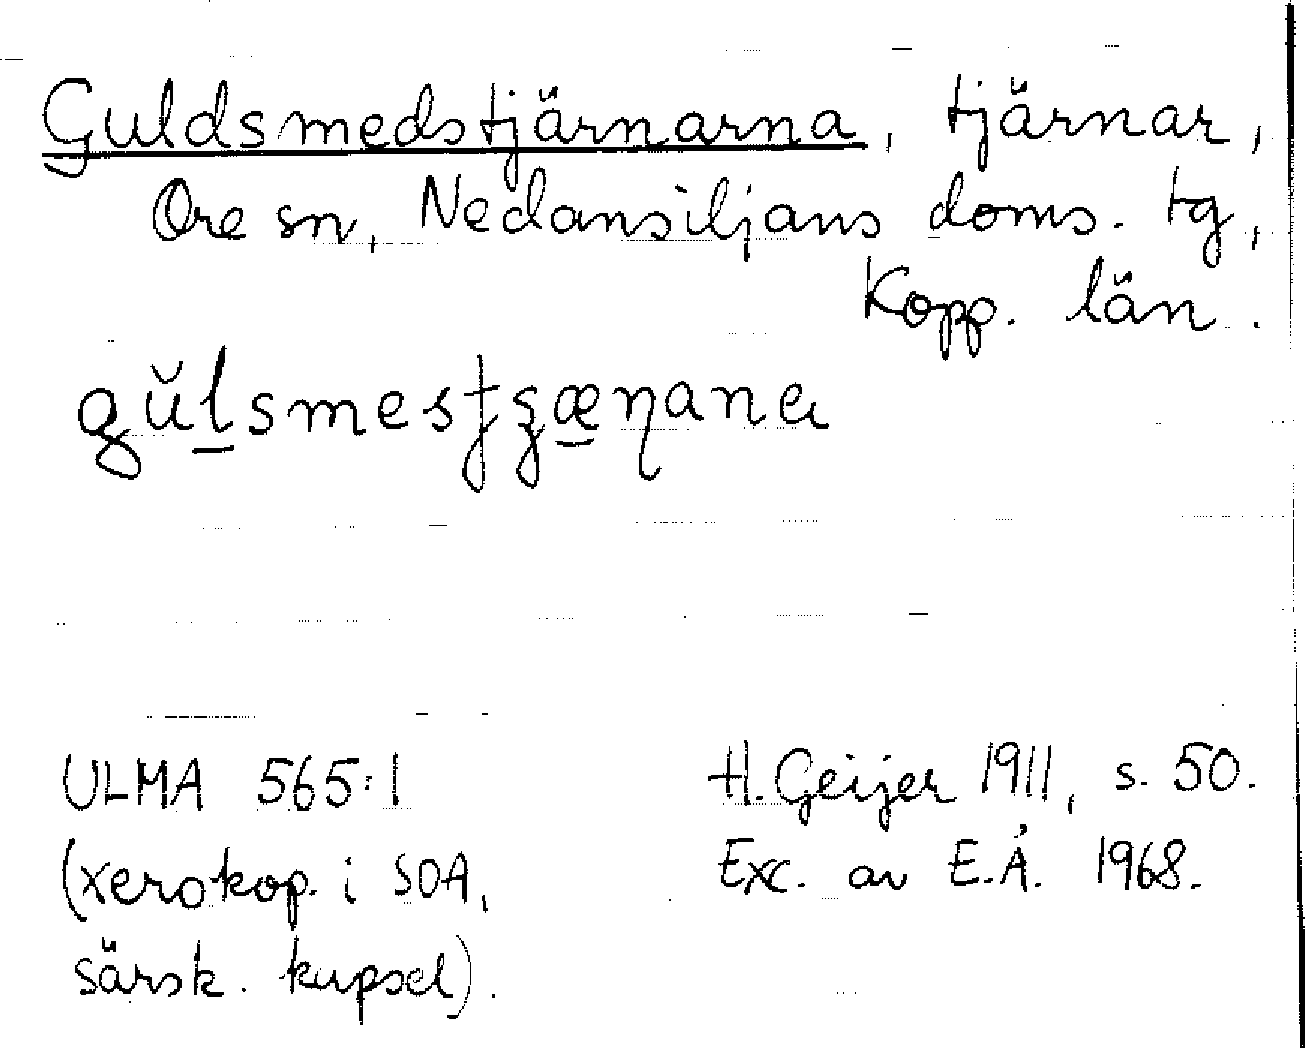 Guldsmedstjärnarna, tjärnar,
Ore sn, Nedansiljans doms. tg,
Kopp. län.
ULMA 565:1
(xerokop. i SOA,
särsk. kapsel).
H. Geijer 1911, s. 50.
Exc. av E.Å. 1968.